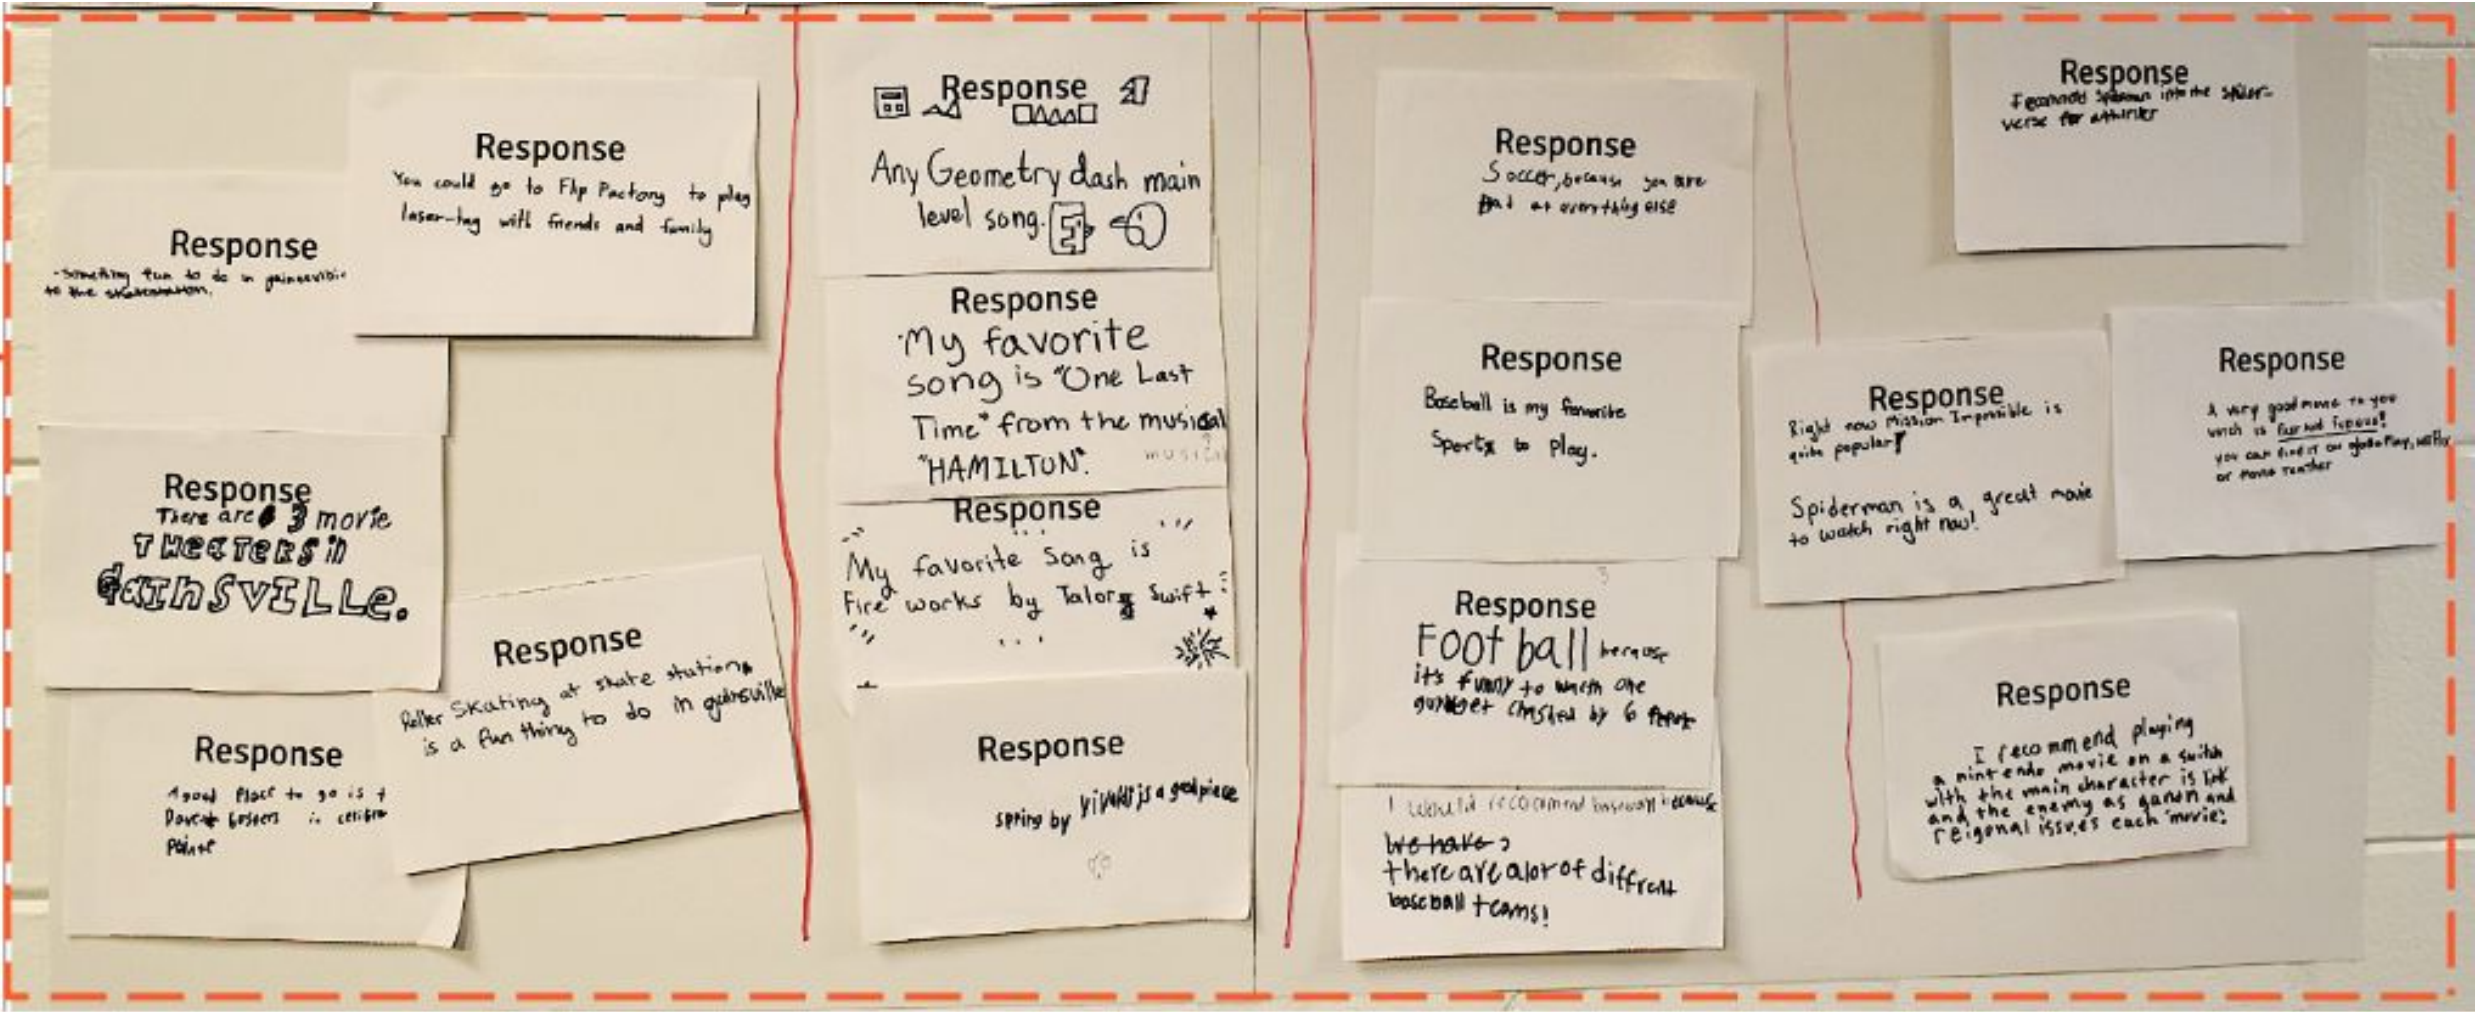 Response
You could go to Flip Factory to play
laser-tag with friends and family
Response
-Something fun to do in
to the skatestation.
Response
There are 3 movie
THEATERS in
GAINSVILLE.
Response
Roller Skating at skate station
is a fun thing to do in gainsville
Response
A good Place to go is
in
Point
Response
Any Geometry dash main
level song.
Response
My favorite
song is "One Last
Time" from the musical
"HAMILTON".
Response
My favorite Song is
Fire works by Talor Swift
Response
spring by vivaldi is a good piece
Response
Soccer, because you are
Bad at everything else
Response
Baseball is my favorite
Sports to Play.
Response
Foot ball because
it's funny to watch one
by 6
I would reccomend baseball because
We have
there are alot of diffrent
baseball teams!
Response
Spiderman into the spider-
verse for
Response
Right now Mission Impossible is
quite popular!
Spiderman is a great movie
to watch right now!
Response
A very good movie to you
is
you can find it on
or movie
Response
I recommend playing
a nintendo movie on a switch
with the main character is link
and the enemy as ganon and
reigonal issues each movie.